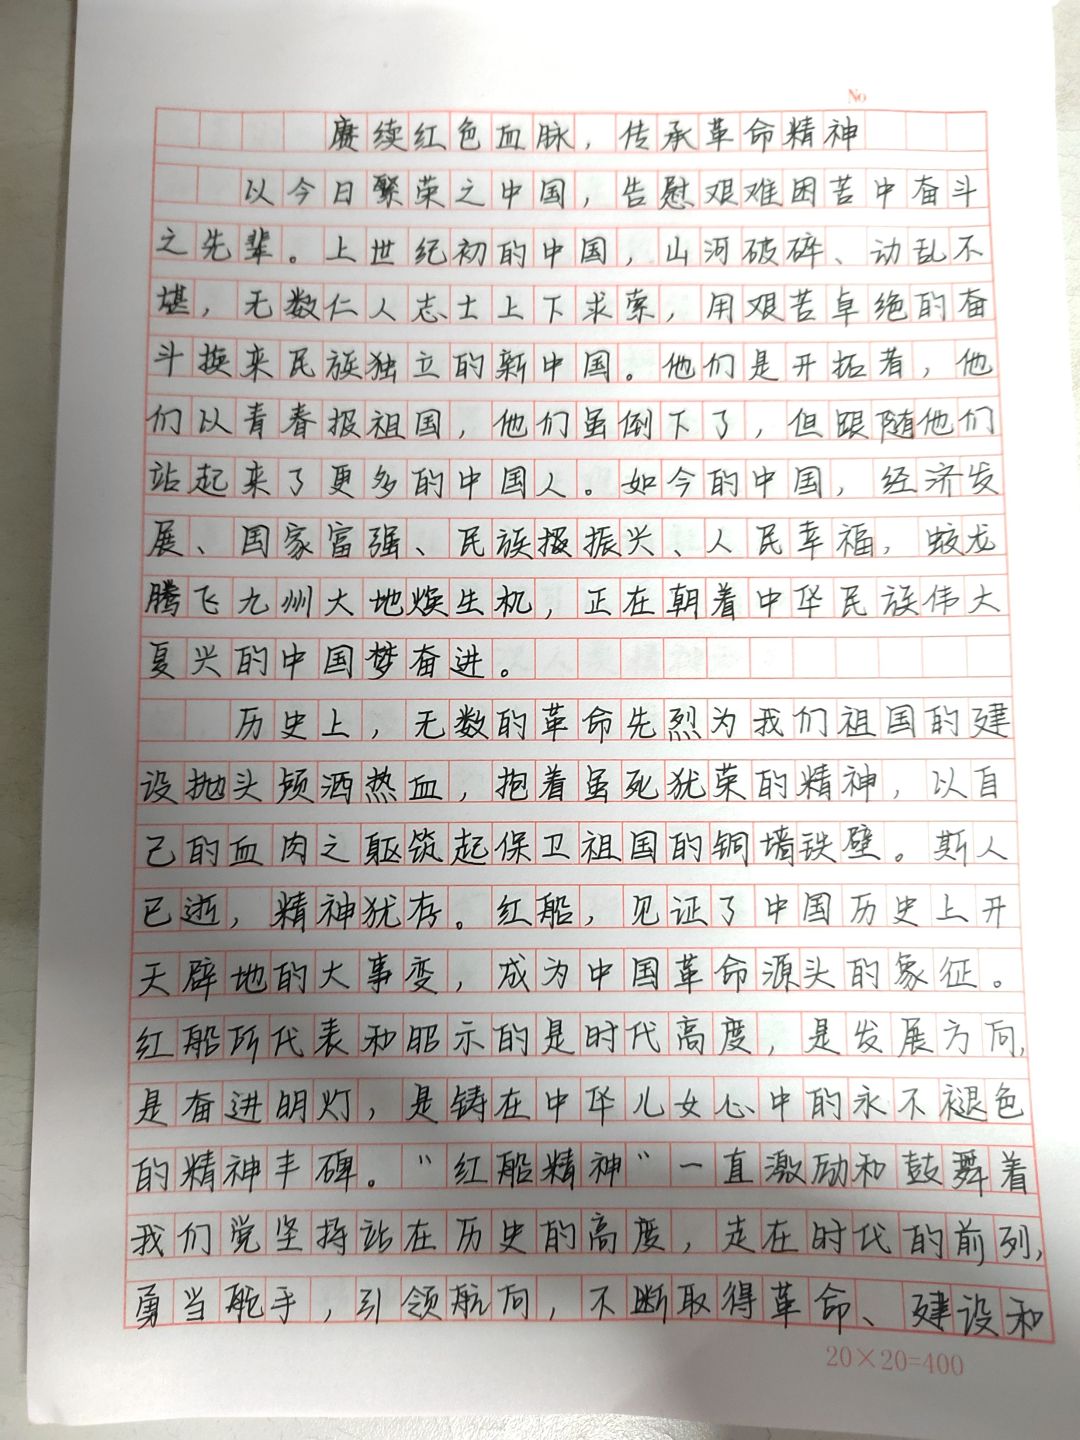 No
赓续红色血脉，传承革命精神
以今日繁荣之中国，告慰艰难困苦中奋斗
之先辈。上世纪初的中国，山河破碎、动乱不
堪，无数仁人志士上下求索，用艰苦卓绝的奋
斗换来民族独立的新中国。他们是开拓者，他
们以青春报祖国，他们虽倒下了，但跟随他们
站起来了更多的中国人。如今的中国，经济发
展、国家富强、民族振兴、人民幸福，蛟龙
腾飞九州大地焕生机，正在朝着中华民族伟大
复兴的中国梦奋进。
历史上，无数的革命先烈为我们祖国的建
设抛头颅洒热血，抱着虽死犹荣的精神，以自
己的血肉之躯筑起保卫祖国的铜墙铁壁。斯人
已逝，精神犹存。红船，见证了中国历史上开
天辟地的大事变，成为中国革命源头的象征。
红船所代表和昭示的是时代高度，是发展方向，
是奋进明灯，是铸在中华儿女心中的永不褪色
的精神丰碑。“红船精神”一直激励和鼓舞着
我们党坚持站在历史的高度，走在时代的前列，
勇当舵手，引领航向，不断取得革命、建设和
20×20=400